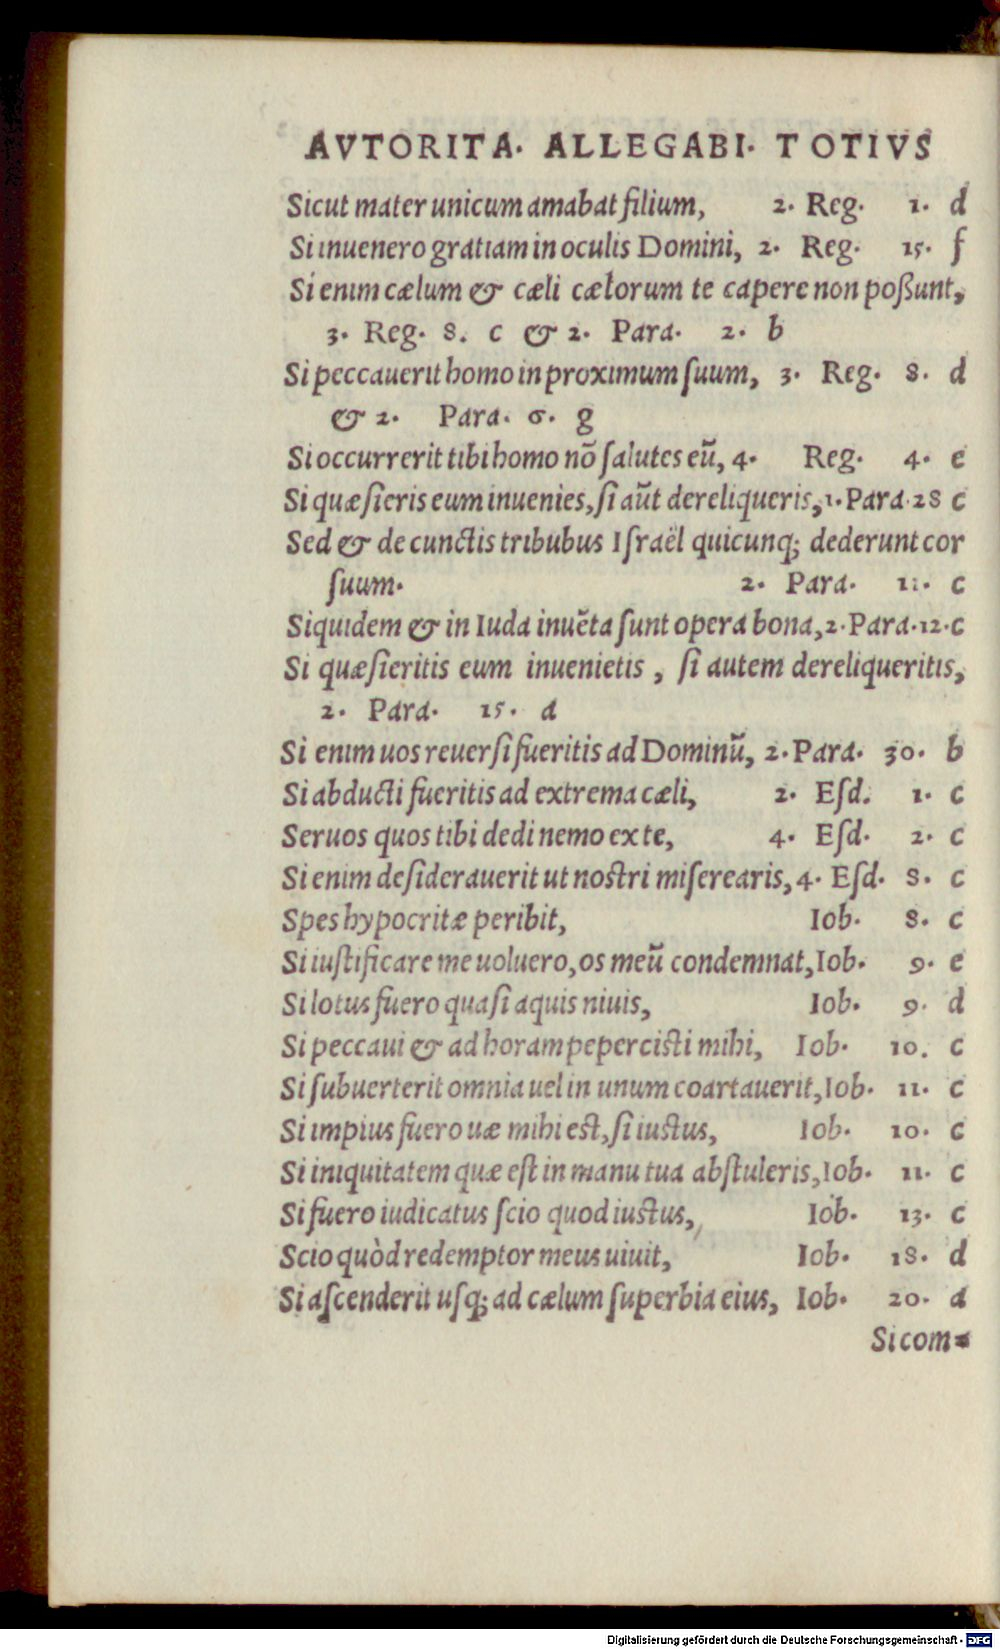 AVTORITA. ALLEGABI. TOTIVS
Sicut mater unicum amabat filium, 2. Reg. 1. d
Si inuenero gratiam in oculis Domini, 2. Reg. 15. f
Si enim cælum & cæli cælorum te capere non poßunt,
3. Reg. 8. c & 2. Para. 2. b
Si peccauerit homo in proximum ſuum, 3. Reg. 8. d
& 2. Para. 6. g
Si occurrerit tibi homo nõ ſalutes eũ, 4. Reg. 4. e
Si quæſieris eum inuenies, ſi aũt dereliqueris, 1. Para. 28 c
Sed & de cunctis tribubus Iſraël quicunq; dederunt cor
ſuum. 2. Para. 11. c
Siquidem & in Iuda inuẽta ſunt opera bona, 2. Para. 12. c
Si quæſieritis eum inuenietis, ſi autem dereliqueritis,
2. Para. 15. a
Si enim uos reuerſi fueritis ad Dominũ, 2. Para. 30. b
Si abducti fueritis ad extrema cæli, 2. Eſd. 1. c
Seruos quos tibi dedi nemo ex te, 4. Eſd. 2. c
Si enim deſiderauerit ut noſtri miſerearis, 4. Eſd. 8. c
Spes hypocritæ peribit, Iob. 8. c
Si iuſtificare me uoluero, os meũ condemnat, Iob. 9. e
Si lotus fuero quaſi aquis niuis, Iob. 9. d
Si peccaui & ad horam pepercisti mihi, Iob. 10. c
Si ſubuerterit omnia uel in unum coartauerit, Iob. 11. c
Si impius fuero uæ mihi est, ſi iustus, Iob. 10. c
Si iniquitatem quæ eſt in manu tua abſtuleris, Iob. 11. c
Si fuero iudicatus ſcio quod iustus, Iob. 13. c
Scio quòd redemptor meus uiuit, Iob. 18. d
Si aſcenderit uſq; ad cælum ſuperbia eius, Iob. 20. a
Si com=
Digitalisierung gefördert durch die Deutsche Forschungsgemeinschaft - DFG